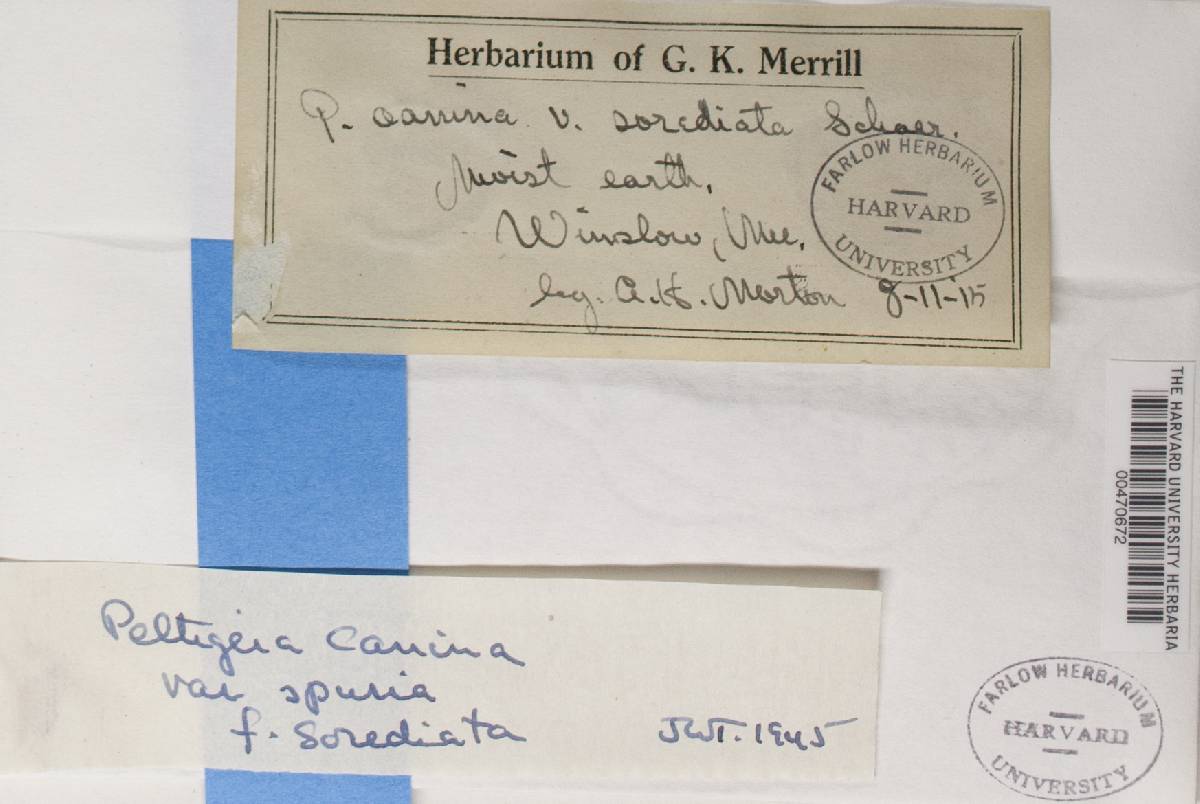 Herbarium of G. K. Merrill
P. canina v. sorediata Schaer.
Moist earth,
Winslow, Me.
leg. A.H. Morton 8-11-15
FARLOW HERBARIUM
HARVARD
UNIVERSITY
THE HARVARD UNIVERSITY HERBARIA
00470672
Peltigera Canina
var spuria
f. Sorediata JWT. 1945
FARLOW HERBARIUM
HARVARD
UNIVERSITY